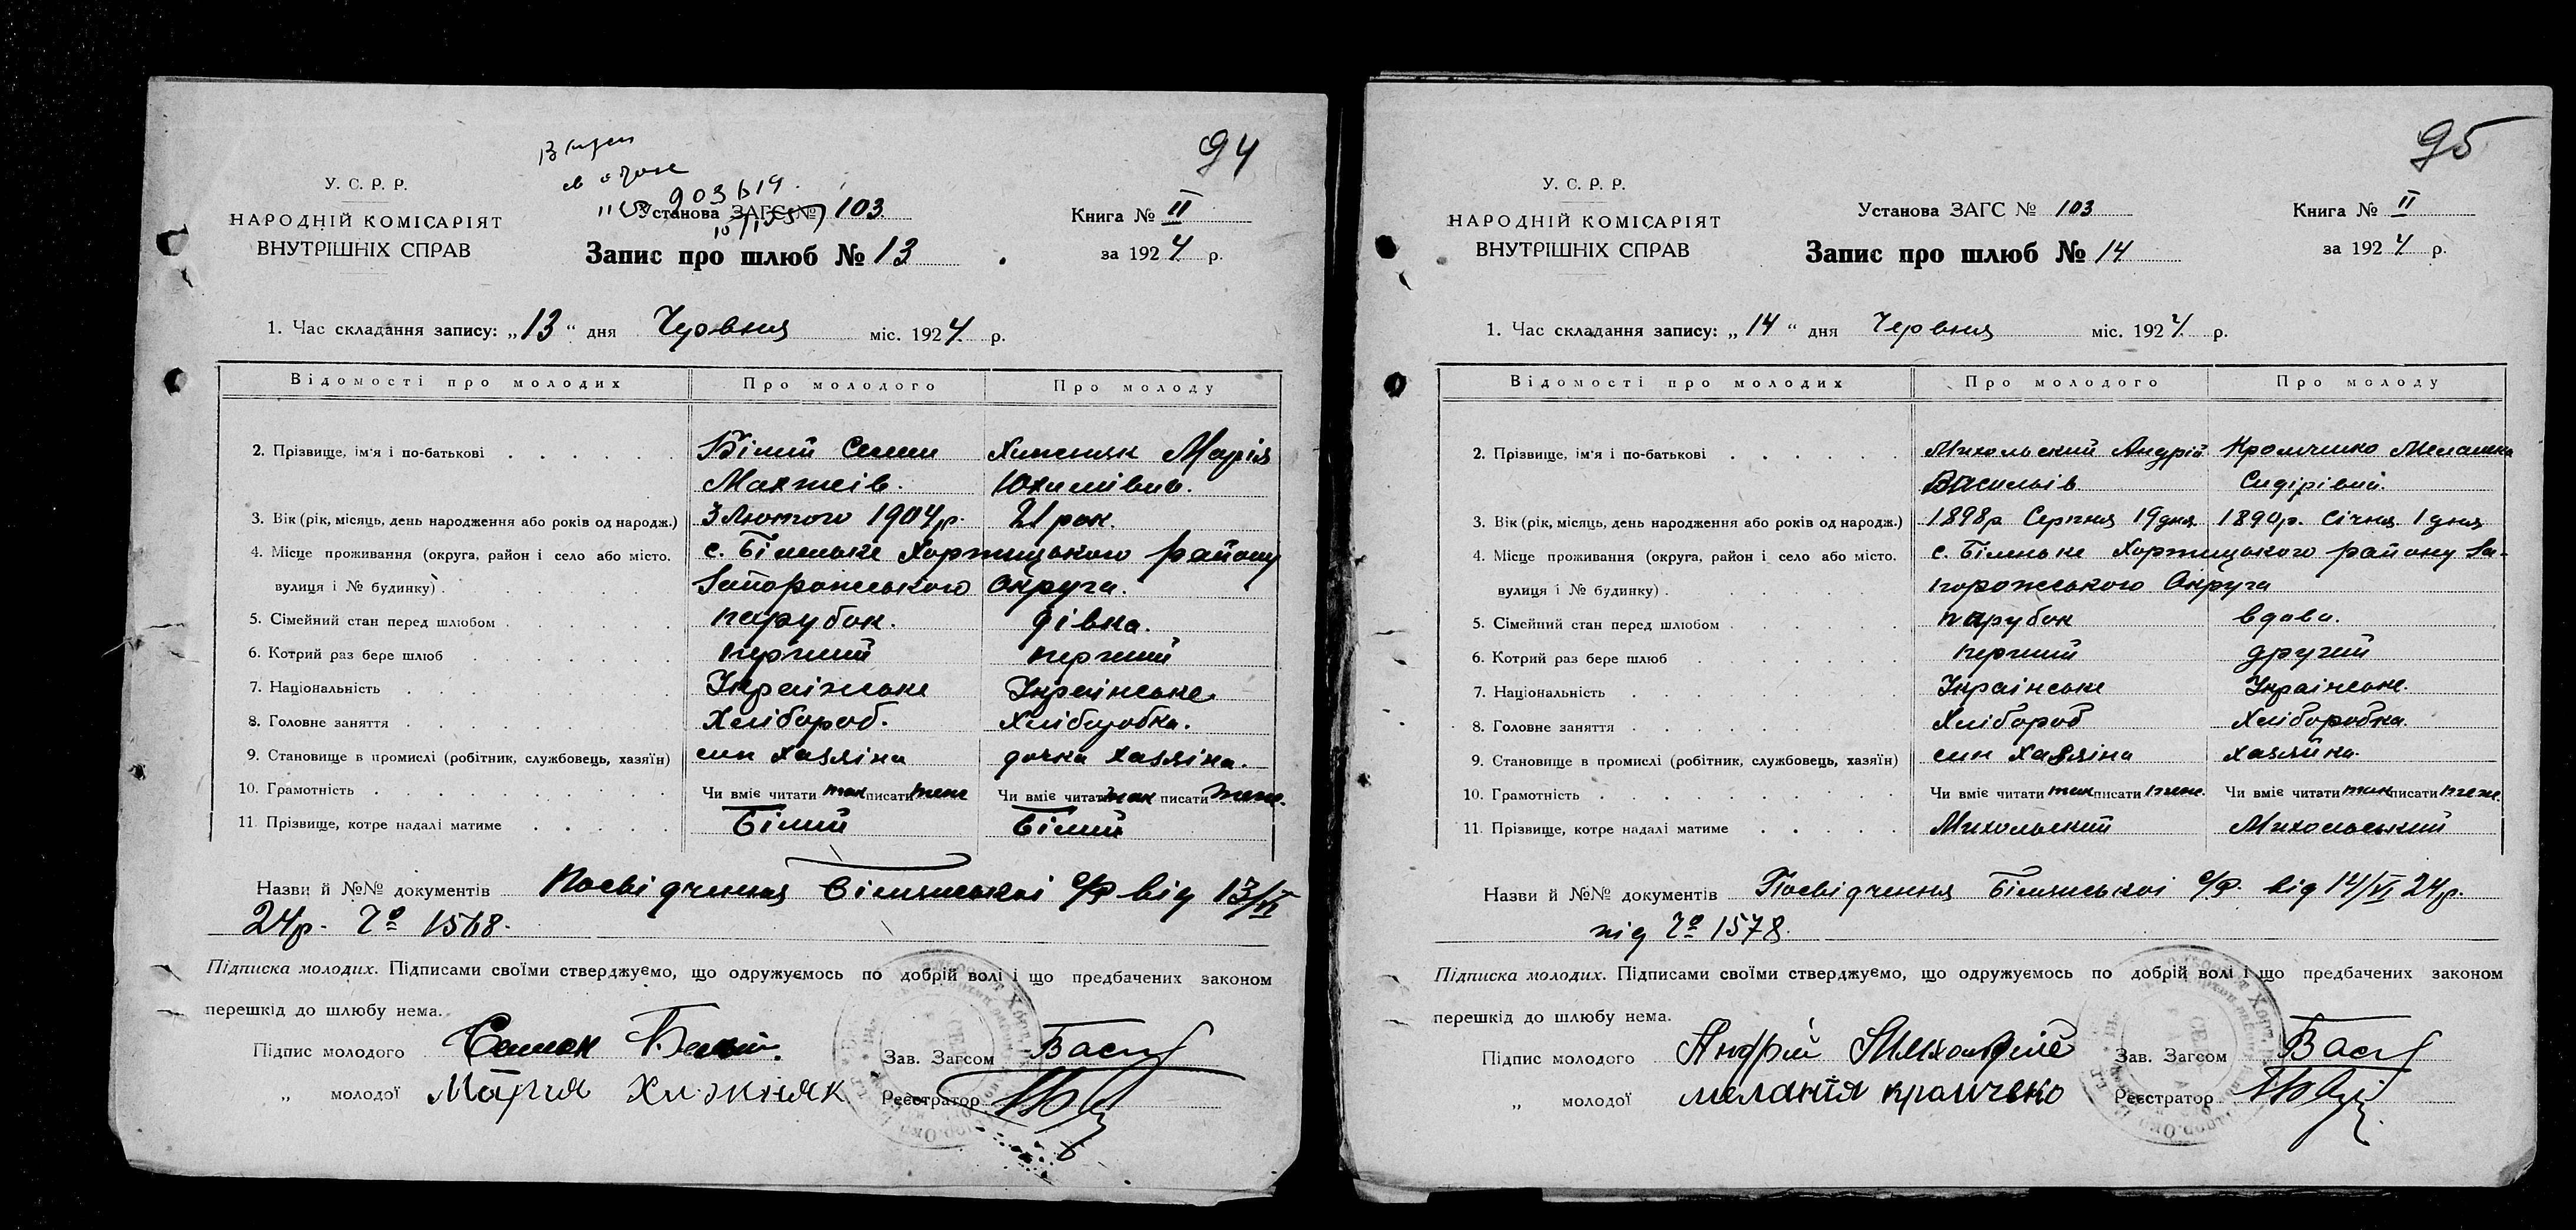 94
У. С. Р. Р.
НАРОДНІЙ КОМІСАРІЯТ
ВНУТРІШНІХ СПРАВ
Установа ЗАГС № 103
Запис про шлюб № 13
Книга № II
за 1924 р.
1. Час складання запису: „13“ дня Червня міс. 1924 р.
Відомості про молодих Про молодого Про молоду
2. Прізвище, ім'я і по-батькові Білий Семен Хижняк Марія
Матвіїв. Юхимівна.
3. Вік (рік, місяць, день народження або років од народж.) 3 Лютого 1904р. 21 рок.
4. Місце проживання (округа, район і село або місто. с. Біленьке Хортицького району
вулиця і № будинку). Запорожського Округа.
5. Сімейний стан перед шлюбом парубок. дівка.
6. Котрий раз бере шлюб перший перший
7. Національність Українське Українське.
8. Головне заняття Хлібороб. Хліборобка.
9. Становище в промислі (робітник, службовець, хазяїн) син хазяїна дочка хазяїна.
10. Грамотність Чи вміє читати так писати теж Чи вміє читати так писати теж.
11. Прізвище, котре надалі матиме Білий Білий
Назви й №№ документів Посвідчення Біленської с/р від 13/VI
24р. Ч° 1568.
Підписка молодих. Підписами своїми стверджуємо, що одружуємось по добрій волі і що предбачених законом
перешкід до шлюбу нема.
Підпис молодого Семен Белий. Зав. Загсом
„ молодої Мария Хижняк Реєстратор
95
У. С. Р. Р.
НАРОДНІЙ КОМІСАРІЯТ
ВНУТРІШНІХ СПРАВ
Установа ЗАГС № 103
Запис про шлюб № 14
Книга № II
за 1924 р.
1. Час складання запису: „14“ дня Червня міс. 1924 р.
Відомості про молодих Про молодого Про молоду
2. Прізвище, ім'я і по-батькові Михольский Андрій Кромченко Мелашка
Васильів Сидірівна.
3. Вік (рік, місяць, день народження або років од народж.) 1898р Серпня 19дня 1890р. Січня 1 дня
4. Місце проживання (округа, район і село або місто. с. Біленьке Хортицького району За-
вулиця і № будинку). порожського Округа
5. Сімейний стан перед шлюбом парубок вдова.
6. Котрий раз бере шлюб перший другий
7. Національність Українське Українське.
8. Головне заняття Хлібороб Хліборобка.
9. Становище в промислі (робітник, службовець, хазяїн) син хазяїна хазяйка.
10. Грамотність Чи вміє читати так писати теж. Чи вміє читати так писати теж.
11. Прізвище, котре надалі матиме Михольский Михольський
Назви й №№ документів Посвідчення Біленської с/р. від 14/VI 24р.
під Ч° 1578.
Підписка молодих. Підписами своїми стверджуємо, що одружуємось по добрій волі і що предбачених законом
перешкід до шлюбу нема.
Підпис молодого Андрій Зав. Загсом
„ молодої мелания кромченко Реєстратор